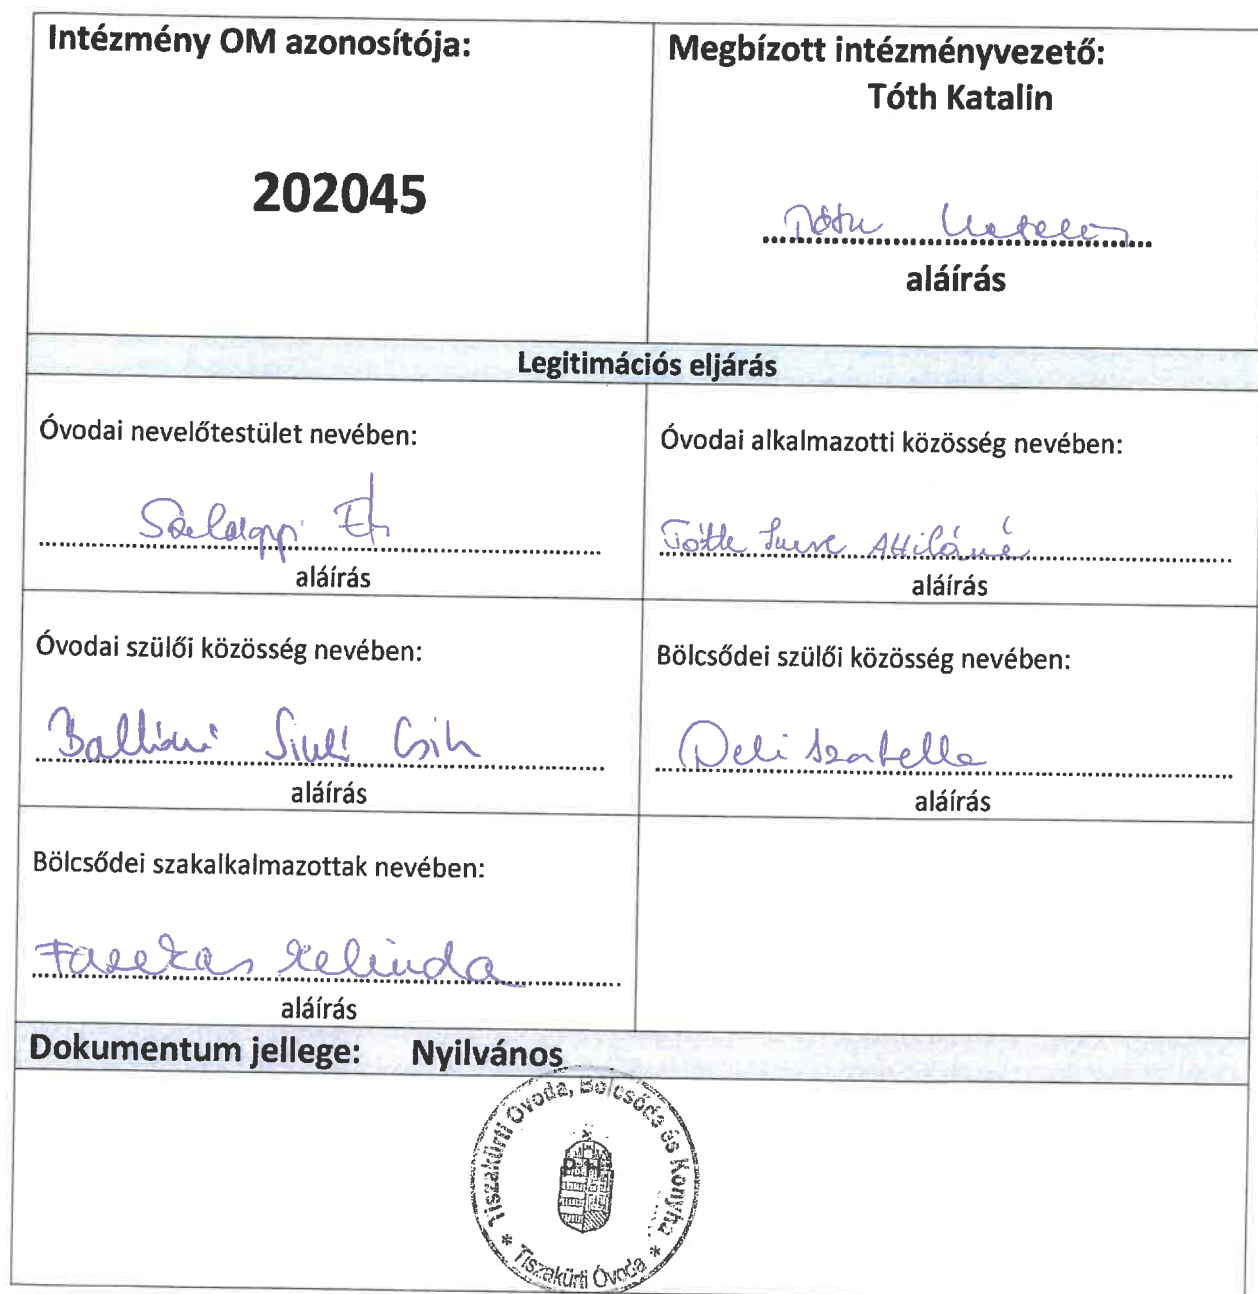 Intézmény OM azonosítója:
202045
Megbízott intézményvezető:
Tóth Katalin
Tóth Katalin
aláírás
Legitimációs eljárás
Óvodai nevelőtestület nevében:
aláírás
Óvodai alkalmazotti közösség nevében:
Tóth Imre Attiláné
aláírás
Óvodai szülői közösség nevében:
aláírás
Bölcsődei szülői közösség nevében:
Deli Szabella
aláírás
Bölcsődei szakalkalmazottak nevében:
Fazekas Melinda
aláírás
Dokumentum jellege: Nyilvános
Tiszakürti Óvoda, Bölcsőde és Konyha
P.H.
* Tiszakürti Óvoda *